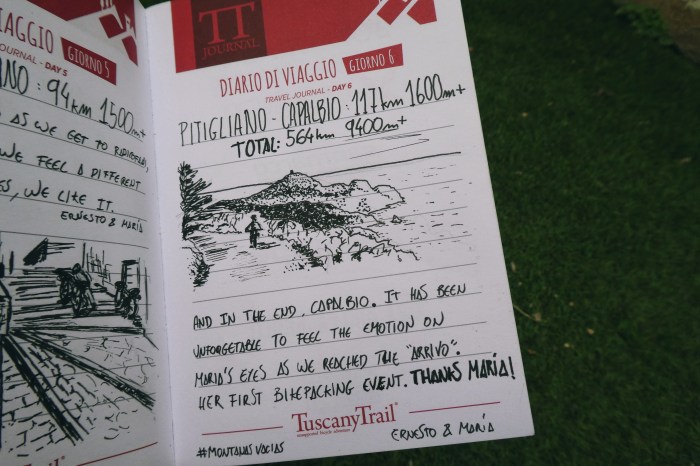 VIAGGIO GIORNO 5
JOURNAL - DAY 5
ANO : 94km 1500m+
AS WE GET TO RADICOFANI,
WE FEEL A DIFFERENT
WE LIKE IT.
ERNESTO & MARÍA
Trail
TT
JOURNAL
DIARIO DI VIAGGIO GIORNO 6
TRAVEL JOURNAL - DAY 6
PITIGLIANO - CAPALBIO : 117km 1600m+
TOTAL: 564km 9400m+
AND IN THE END, CAPALBIO. IT HAS BEEN
UNFORGETABLE TO FEEL THE EMOTION ON
MARIA'S EYES AS WE REACHED THE "ARRIVO".
HER FIRST BIKEPACKING EVENT. THANKS MARÍA!
TuscanyTrail®
unsupported bicycle adventure
#MONTANASVACIAS
ERNESTO & MARÍA